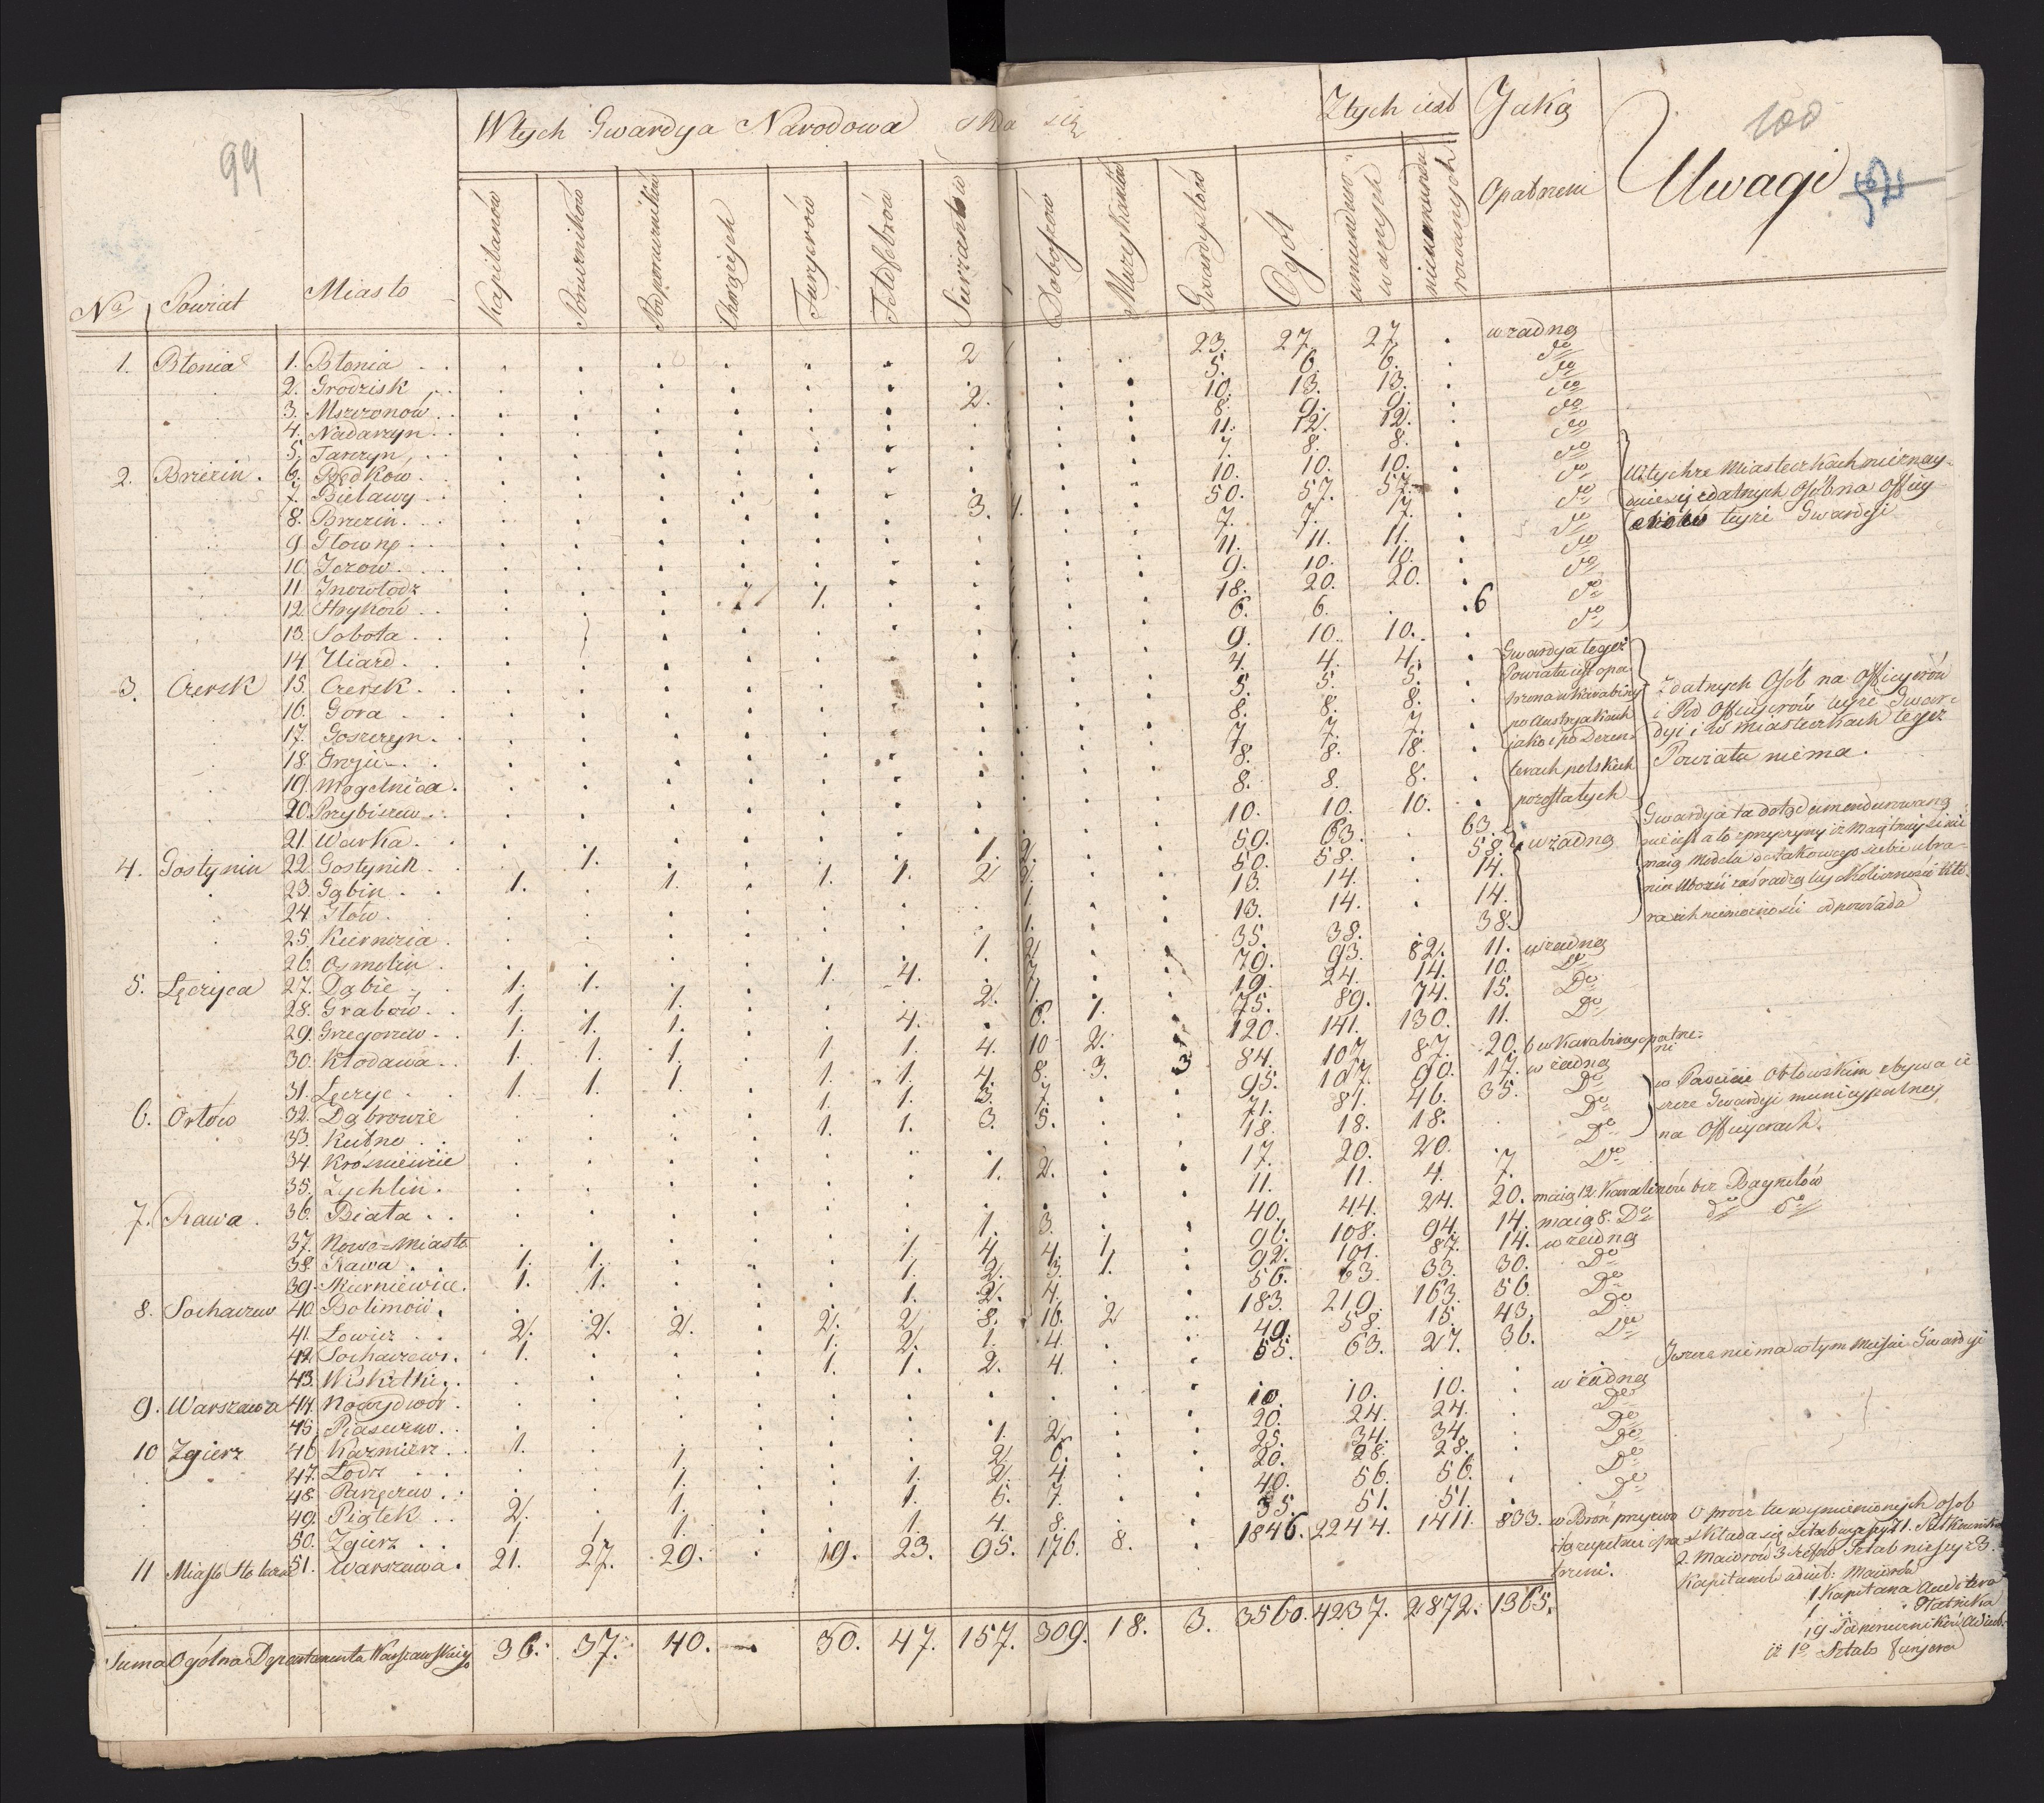 99
100
Wtych Gwardya Narodowa składa się
Ztych iest
Jaką
Opatrzeni
Uwagi
No Powiat Miasto Kapitanów Poruczników Podporuczników Chorążych Furyerów Feldfebrów Surzantów Doboszów Muzykantów Gwardystów Ogół umundurowanych nieumundurowanych
1. Błonia 1. Błonia . . 2 23. 27. 27. . w zadną
2. Grodzisk . 5. 6. 6. . do
3. Mszczonów . . 2. 10. 13. 13. . do
4. Nadarzyn . . 8. 9. 9. . do
5. Tarczyn . 11. 12. 12. . do
2. Brzezin . 6. Będkow . . 7. 8. 8. . do
7. Bielawy . . 10. 10. 10. . do
8. Brzezin . . 3. 1. 50. 57. 57. . do
9. Głowno . . 7. 7. 7. . do
10. Jezow . . 11. 11. 11. . do
11 Inowłodz 9. 10. 10. . do
12. Stryków . . 1. 18. 20. 20. . do
13. Sobota . . 6. 6. . 6 do
14. Uiazd . . 9. 10. 10. . do
Wtychże Miasteczkach nieznay-
duie się zdatnych Osób na Offixy-
erów teyże Gwardyi
3. Czersk 15. Czersk . . 4. 4. 4. .
16. Gora . . 5. 5. 5. .
17. Goszczyn . 8. 8. 8. .
18. Groyii . 7. 7. 7. .
19. Mogelnica . 18. 18. 18. .
20. Przybiszew . . 8. 8. 8. .
21. Warka . . 10. 10. 10. .
Gwardya tegoż
Powiatu iest opa-
trzona w Karabiny
po Austryakach
jako i po Dezer-
terach polskich
pozostałych
Zdatnych Osób na Officyerów
i Pod Officyerów teyże Gwar-
dyi i w miasteczkach tegoż
Powiatu niema.
4. Gostynin 22. Gostynin . . 1. 1. 2. 59. 63. . 63. w żadną
23. Gąbin . . 1. 1. 1. 1. 2 2. 50. 58. . 58.
24. Iłów . . 1. 13. 14. . 14.
25. Kiernozia . 1. 13. 14. . 14.
26. Osmolin . . 1. 2 35. 38. . 38.
Gwardya ta dotąd umundurowaną
nie iest a to z przyczyny iż Maiętnieysi nie
5. Łęczyca 27. Dąbie . . 1. 1. 1. 4. 7. 79. 93. 82. 11. w żadną
28. Grabów . . 1. 1. 2. 1. 19. 24. 14. 10. Do
29. Grzegorzew . . 1. 1. 1. 4. . 6. 1. 75. 89. 74. 15. Do
30. Kłodawa . . 1. 1. 1. 1. 1. 4. 10 2. 120. 141. 130. 11. Do
31. Łęczyc . 1. 1. 1. 1. 1. 4. 8. 3. 3 84. 107. 87. 20. 6 w Karabiny opatrze-
ni
6. Orłów 32. Dąbrowie 1. 1. 3. 7. 95. 107. 90. 17. w żadną
33. Kutno . . 1. 1. 3. 5. 71. 81. 46. 35. Do
34. Krosniewice 18. 18. 18. . Do
35. Zychlin . 1. 2. 17. 20. 20. . Do
w Powiecie Orłowskim zbywa ie-
szcze Gwardyi municypalney
na Officyerach.
7. Rawa . 36. Biała . . 11. 11. 4. 7. Do
37. Nowe=Miasto 1. 3. 40. 44. 24. 20. maią 12. Karabinów bez Bagnetów
38. Rawa . . 1. 1. 1. 4 4. 1. 96. 108. 94. 14. maią 8. Do do do
39. Skierniewice . 1. 1. 1. 2. 3. 1. 92. 101. 87. 14. w żadną
8. Sochaczew 40. Bolimow . 1. 2. 4. 56. 63. 33. 30. Do
41. Łowicz . . 2. 2. 2. . 2. 2 8. 16. 2 183. 219. 163. 56. Do
42. Sochaczew . 1. 1. 2. 1. 4. 49. 58. 15. 43. Do
43. Wiskitki . . 1. 1. 2. 4 55. 63. 27. 36. Do
9. Warszawa 44. Nowydwór . Jeszcze niema w tym Mieście Gwardyi
45. Piaseczno . . 10. 10. 10. . w żadną
10 Zgierz 46 Kazmierz . . 1. 1. 2. 20. 24. 24. Do
47. Łodz . . 1. 2. 6. 25. 34. 34. . Do
48. Parzęczew . . 1. 1. 2. 4. 20. 28. 28. Do
49. Piątek . . 2. 1. 1. 5. 7. 40. 56. 56. . Do
50. Zgierz . . 1. 1. 1. 1. 4. 8. 35. 51. 51. . Do
11 Miasto Stołeczne 51. Warszawa . 21. 27. 29. . 19. 23. 95. 176. 8. . 1846. 2244. 1411. 833. w Broń przyzwo
itą zupełnie opa
trzeni.
O procz tu wymienionych osob
składa się Sztab wyższy z 1. Półkownika
2. Maiorów 3 Szefów Sztab nieszy z 3.
Kapitanów adiut: Maiorów
1 Kapitana Auditora
1 . . . Płatnika
19 Podporuczników Adiut.
iż 1o Sztabs Furyera
Suma Ogólna Departamenta Warszawskiego 36. 37. 40. — 30. 47. 157. 309. 18. 3. 3560. 4237. 2872. 1365.